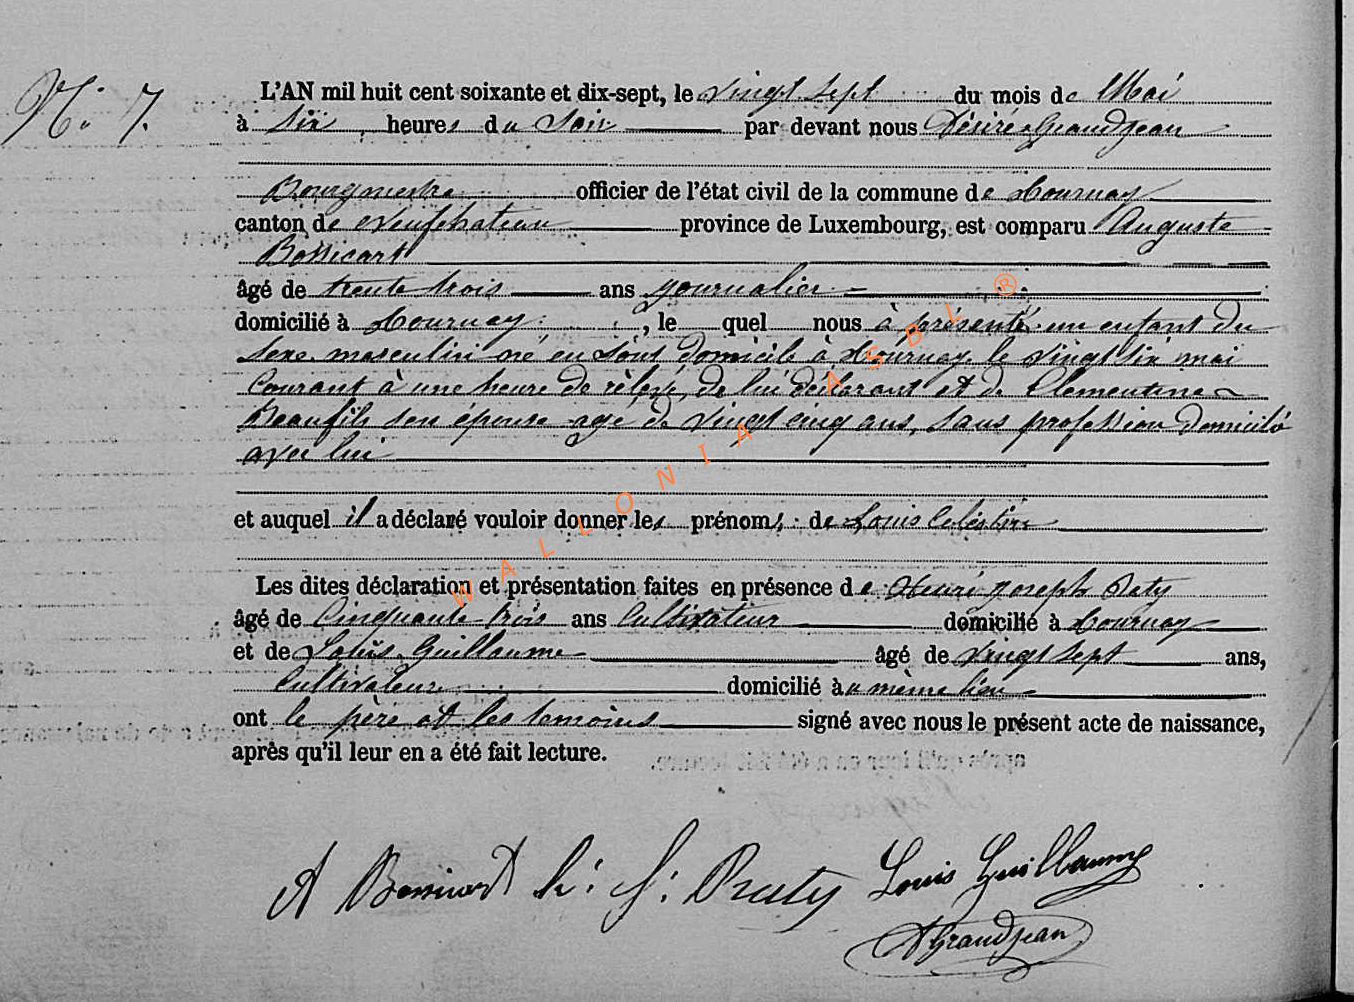 N.º 7.
L'AN mil huit cent soixante et dix-sept, le vingt sept du mois de Mai
à six heures du soir par devant nous Désiré Grandjean
Bourgmestre officier de l'état civil de la commune de Tournay
canton de Neufchateau province de Luxembourg, est comparu Auguste
Bossicart
âgé de trente trois ans journalier
domicilié à Tournay, le quel nous à présenté un enfant du
sexe masculin né en sont domicile à Tournay le vingt six mai
courant à une heure de rélevé, de lui déclarant et de Clementine
Beaufils son épouse agé de vingt cinq ans, sans profession domicilié
avec lui
et auquel il a déclaré vouloir donner les prénoms de Louis Célestin
Les dites déclaration et présentation faites en présence de Henri Joseph Raty
âgé de cinquante trois ans cultivateur domicilié à Tournay
et de Louis Guillaume âgé de vingt sept ans,
cultivateur domicilié au même lieu
ont le père et les temoins signé avec nous le présent acte de naissance,
après qu'il leur en a été fait lecture.
A Bossicart h: J: Raty Louis Guillaume
D Grandjean
WALLONIA ASBL ®